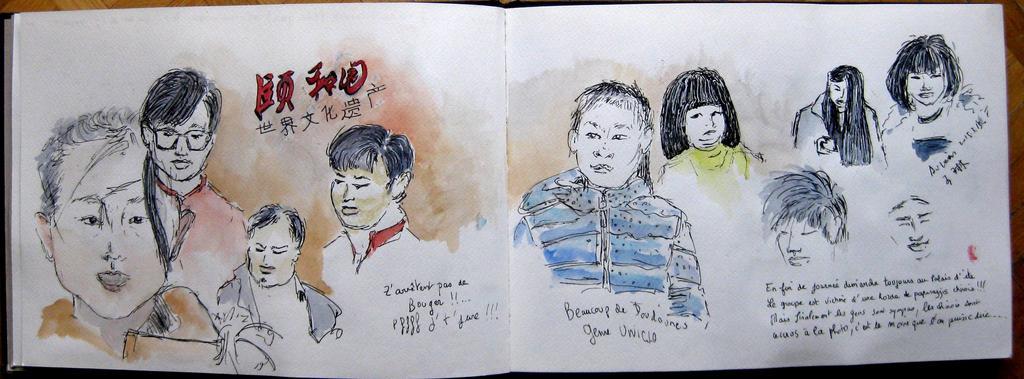 頤和园
世界文化遗产
Z'arrêtent pas de
Bouger !!...
pffff j't'jure !!!
Beaucoup de Doudounes
genre UNIQLO
En fin de journée dimanche toujours au Palais d'été
le groupe est victime d'une horde de paparazzis chinois !!!
Mais finalement les gens sont sympas, les chinois sont
accros à la photo, c'est le moins que l'on puisse dire....